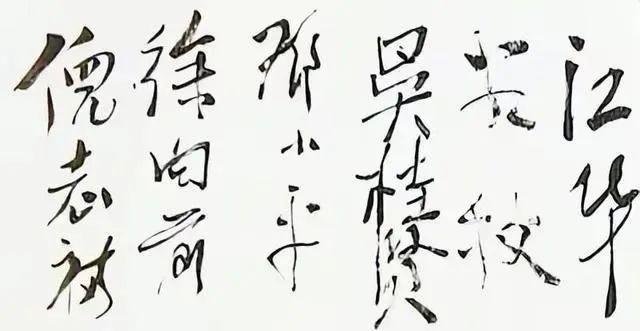 江华
吴桂贤
邓小平
徐向前
倪志福